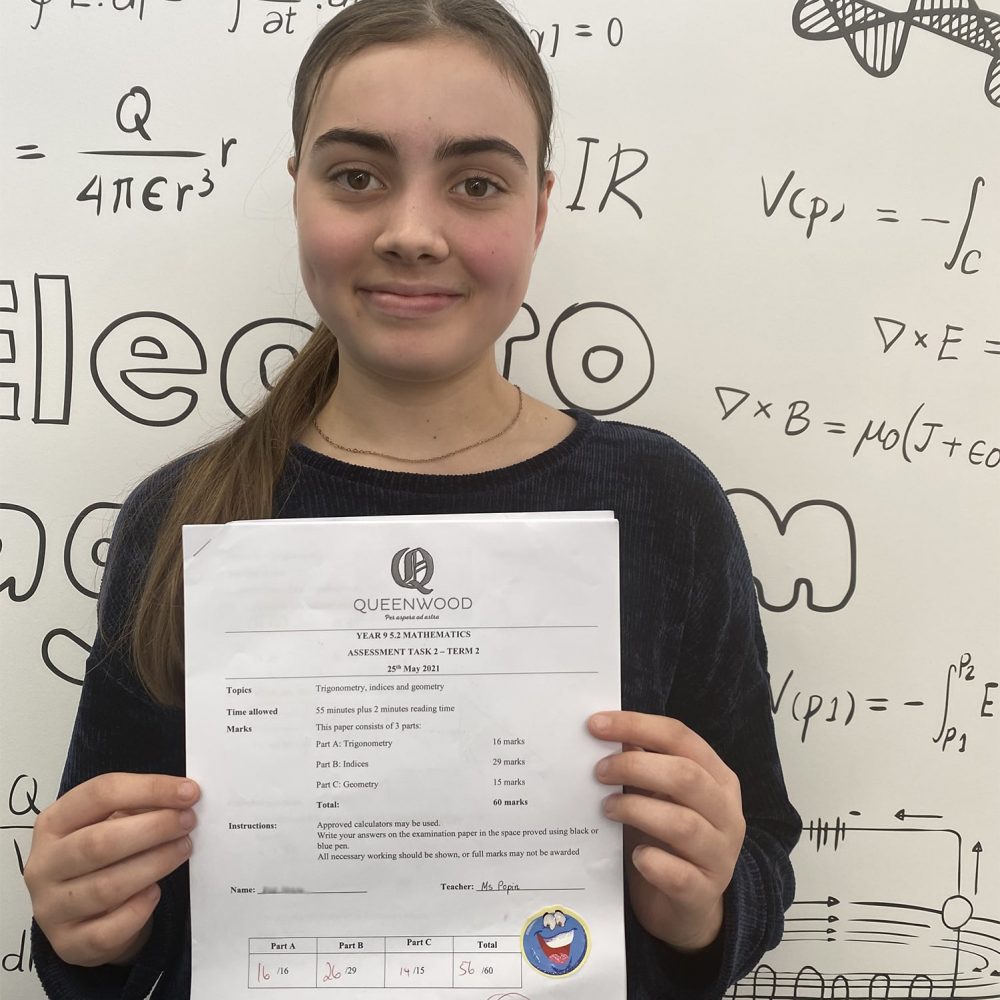 ] = 0
= Q / 4πϵr³ r
IR
V(p) = -∫C
Electro
∇×E =
∇×B = μ0(J+ϵ0
m
V(p1) = -∫p1 p2 E
Q
QUEENWOOD
Per aspera ad astra
YEAR 9 5.2 MATHEMATICS
ASSESSMENT TASK 2 – TERM 2
25th May 2021
Topics Trigonometry, indices and geometry
Time allowed 55 minutes plus 2 minutes reading time
Marks This paper consists of 3 parts:
Part A: Trigonometry 16 marks
Part B: Indices 29 marks
Part C: Geometry 15 marks
Total: 60 marks
Instructions: Approved calculators may be used.
Write your answers on the examination paper in the space proved using black or
blue pen.
All necessary working should be shown, or full marks may not be awarded
Name: Teacher: Ms Popin
Part A Part B Part C Total
16 /16 26 /29 14 /15 56 /60